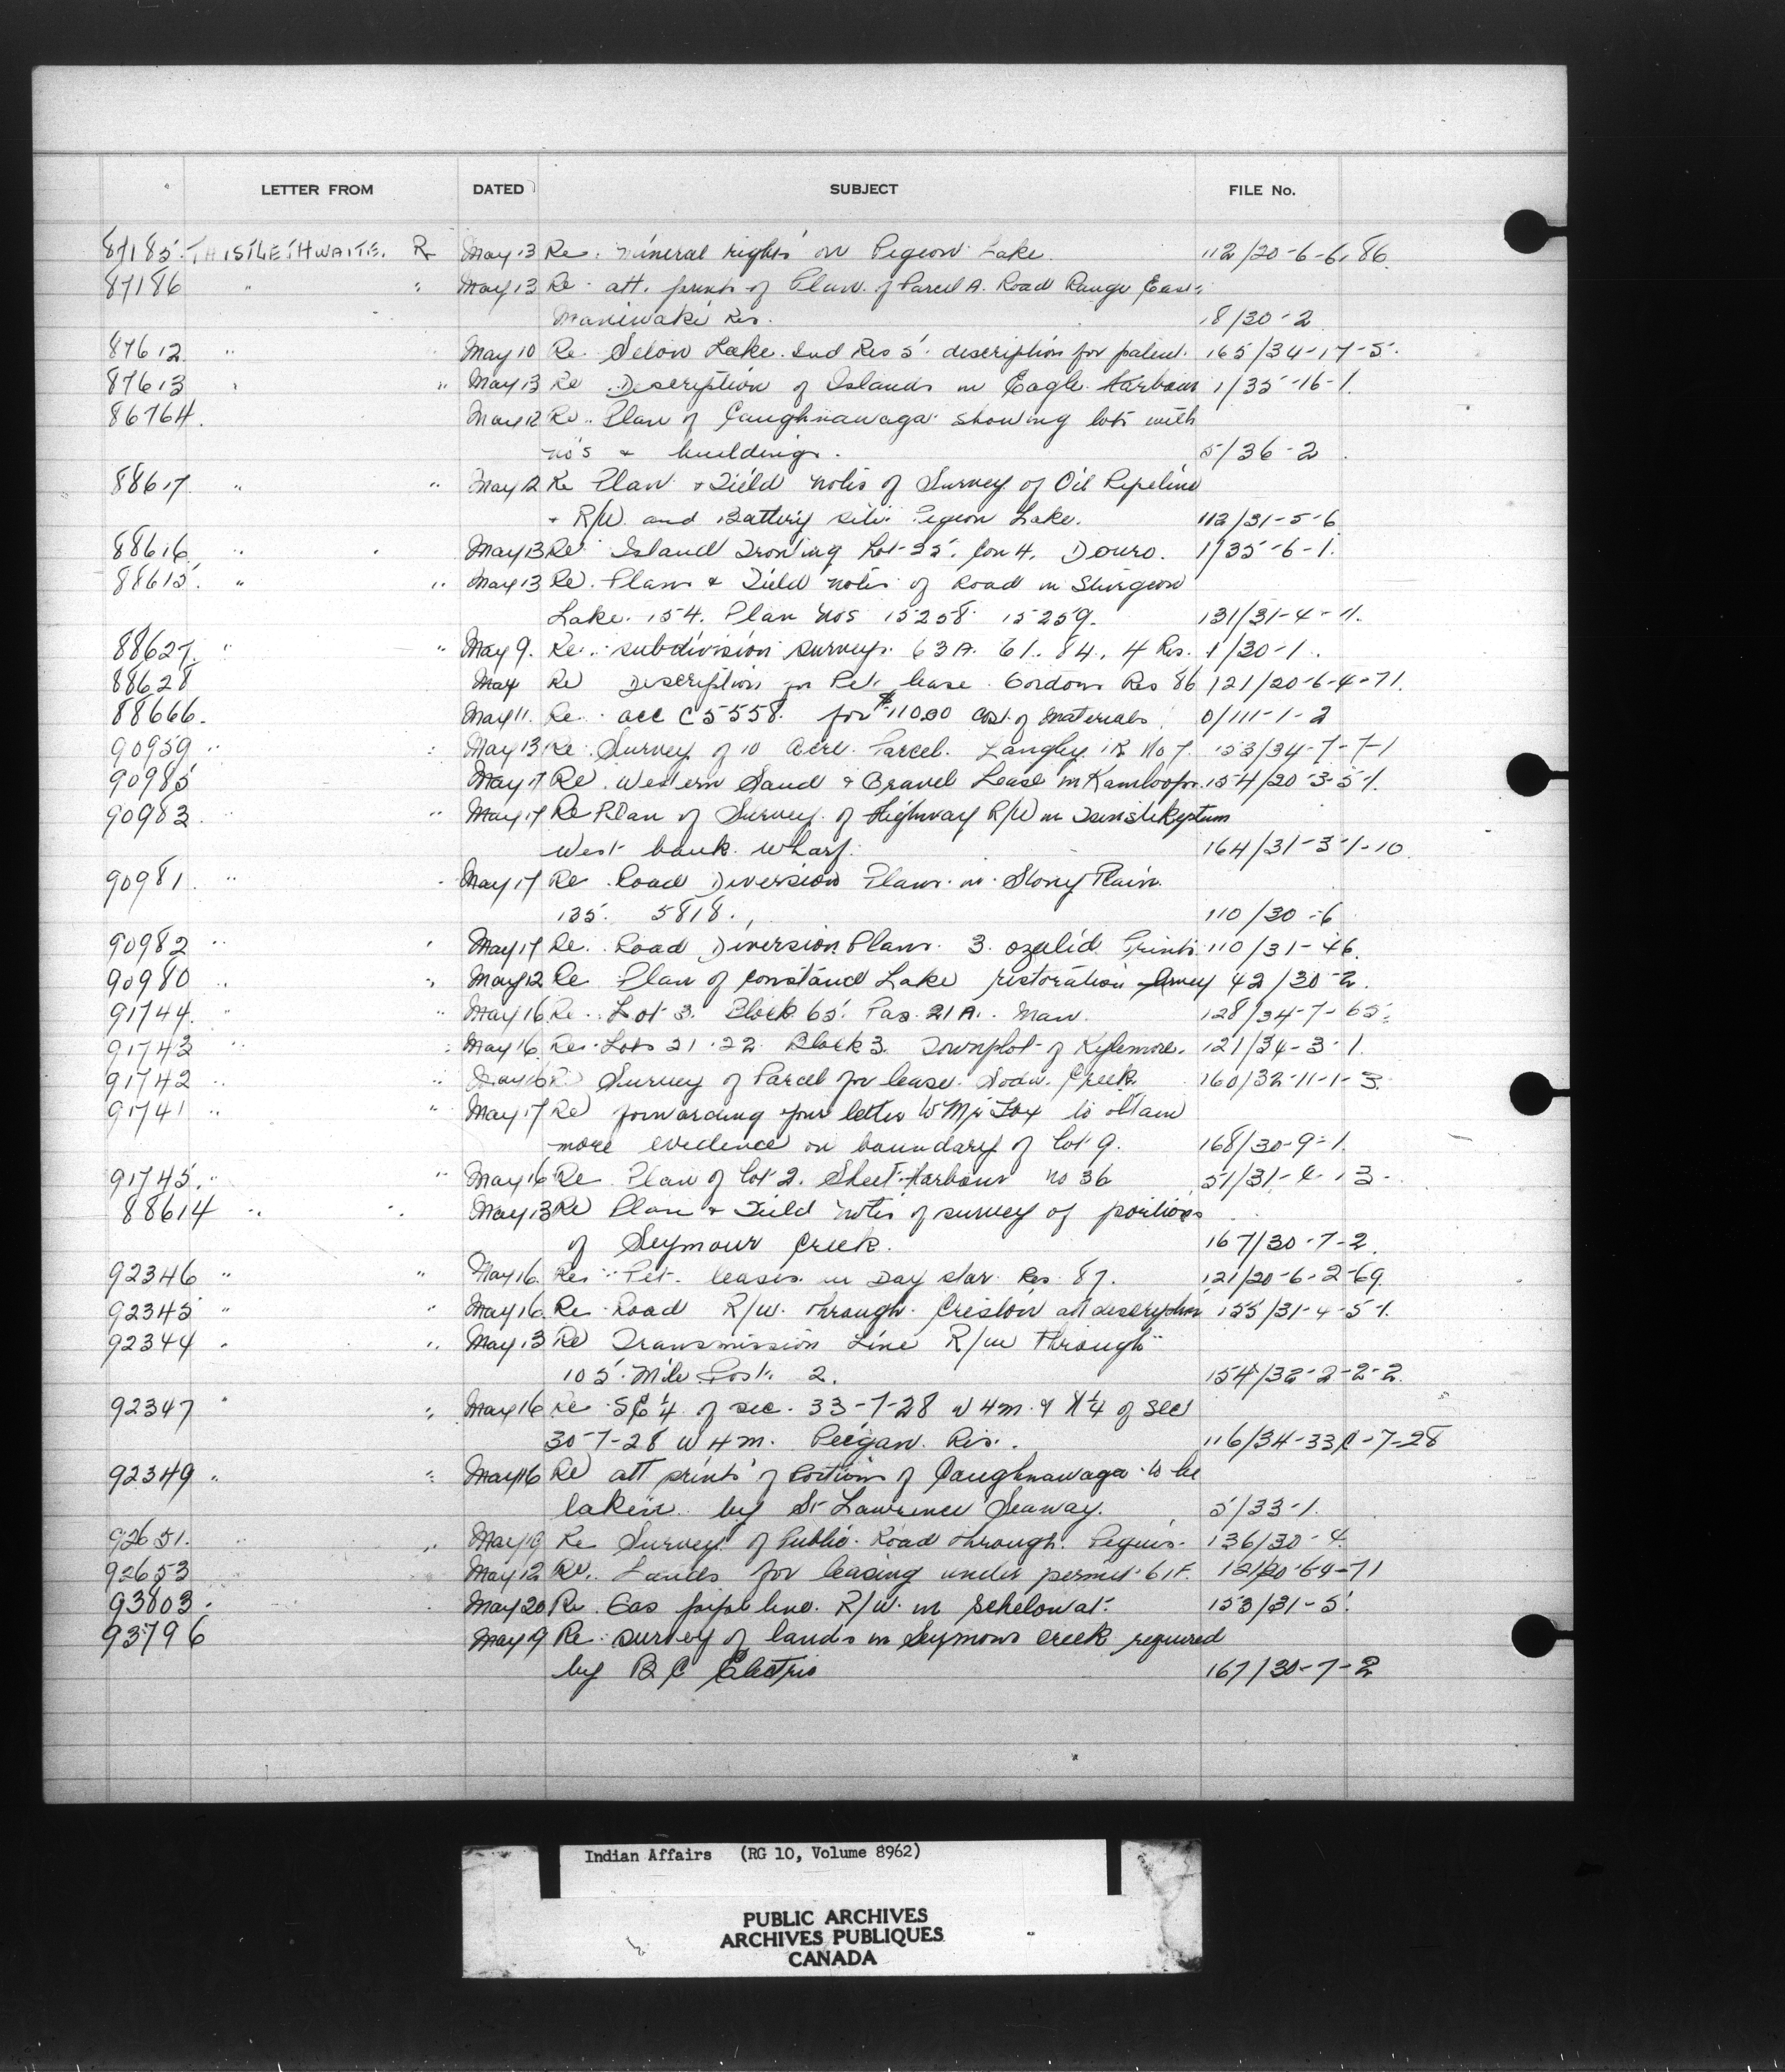 LETTER FROM DATED SUBJECT FILE No.
87185 THISTLETHWAITE. R May 13 Re. mineral rights on Pigeon Lake. 112/20-6-6-86
87186 " " May 13 Re att. prints of Plan of Parcel A. Road Range East
Maniwaki Res. 18/30-2
87612 " May 10 Re Lake Ind Res 5 description for patent. 165/34-17-5.
87613 " " May 13 Re Description of Islands in Eagle Harbour 1/35-16-1.
86764. May 12 Re. Plan of Caughnawaga showing lots with
no's & buildings. 5/36-2
88617 " " May 12 Re Plan & Field notes of Survey of Oil Pipeline
+ R/W and Battery site Pigeon Lake. 112/31-5-6
88616 " " May 13 Re Island Fronting Lot 25. Con 4. Douro. 1/35-6-1.
88615 " " May 13 Re. Plan & Field notes of Road in Sturgeon
Lake. 154. Plan nos 15258 15259. 131/31-4-11.
88627. " " May 9. Re. subdivision surveys. 63A. 61. 84. 4 Res. 1/30-1.
88628 May Re Description for Pet. lease Gordons Res 86 121/20-6-4-71.
88666. May 11. Re acc C5558 for $110.00 cost of materials 0/111-1-2
90959 " " May 13 Re Survey of 10 Acre Parcel. Langley IR No 7. 153/34-7-7-1
90985 May 17 Re Western Sand & Gravel Lease in Kamloops. 154/20-3-5-1.
90983 " May 17 Re Plan of Survey of Highway R/W in Tsinstikeptum
West bank wharf. 164/31-3-1-10
90981 " May 17 Re Road Diversion Plans in Stony Plain
135. 5818. 110/30-6
90982 " " May 17 Re. Road Diversion Plans. 3 ozalid Prints 110/31-46.
90980 " " May 12 Re Plan of Constance Lake restoration survey 42/30-2.
91744. " May 16 Re. Lot 3. Block 65. Pas. 21A. Man. 128/34-7-65.
91743 " " May 16. Re Lots 21-22 Block 3. Townplot of Kylemore. 121/34-3-1.
91742 " " May 16 Re Survey of Parcel for lease. Soda Creek. 160/32-11-1-3.
91741 " " May 17 Re forwarding your letter to Mr Fox to obtain
more evidence on boundary of lot 9. 168/30-9-1.
91745. " " May 16 Re Plan of lot 2. Sheet Harbour no 36 51/31-4-13-
88614 " " May 13 Re Plan & Field notes of survey of portions
of Seymour Creek. 167/30-7-2.
92346 " " May 16. Re Pet. leases in Day star Res 87. 121/20-6-2-69.
92345 " " May 16. Re Road R/W. through Creston att description 155/31-4-5-1.
92344 " " May 13 Re Transmission Line R/W through
105 Mile Post 2. 154/32-2-2-2.
92347 " " May 16 Re SE 1/4 of sec. 33-7-28 W4m. & N 1/4 of sec
30-7-28 W4m. Peigan Res. 116/34-33C-7-28
92349 " " May 16 Re att prints of Portions of Caughnawaga to be
taken by St Lawrence Seaway. 5/33-1.
92651. " " May 19 Re Survey of Public Road through Peguis. 136/30-4.
92653 May 12 Re. Lands for leasing under permit 61F. 121/20-6-4-71
93803. May 20 Re Gas pipe line. R/W in Schelowat. 153/31-5.
93796 May 19 Re survey of lands in Seymour Creek required
by B C Electric 167/30-7-2
Indian Affairs (RG 10, Volume 8962)
PUBLIC ARCHIVES
ARCHIVES PUBLIQUES
CANADA